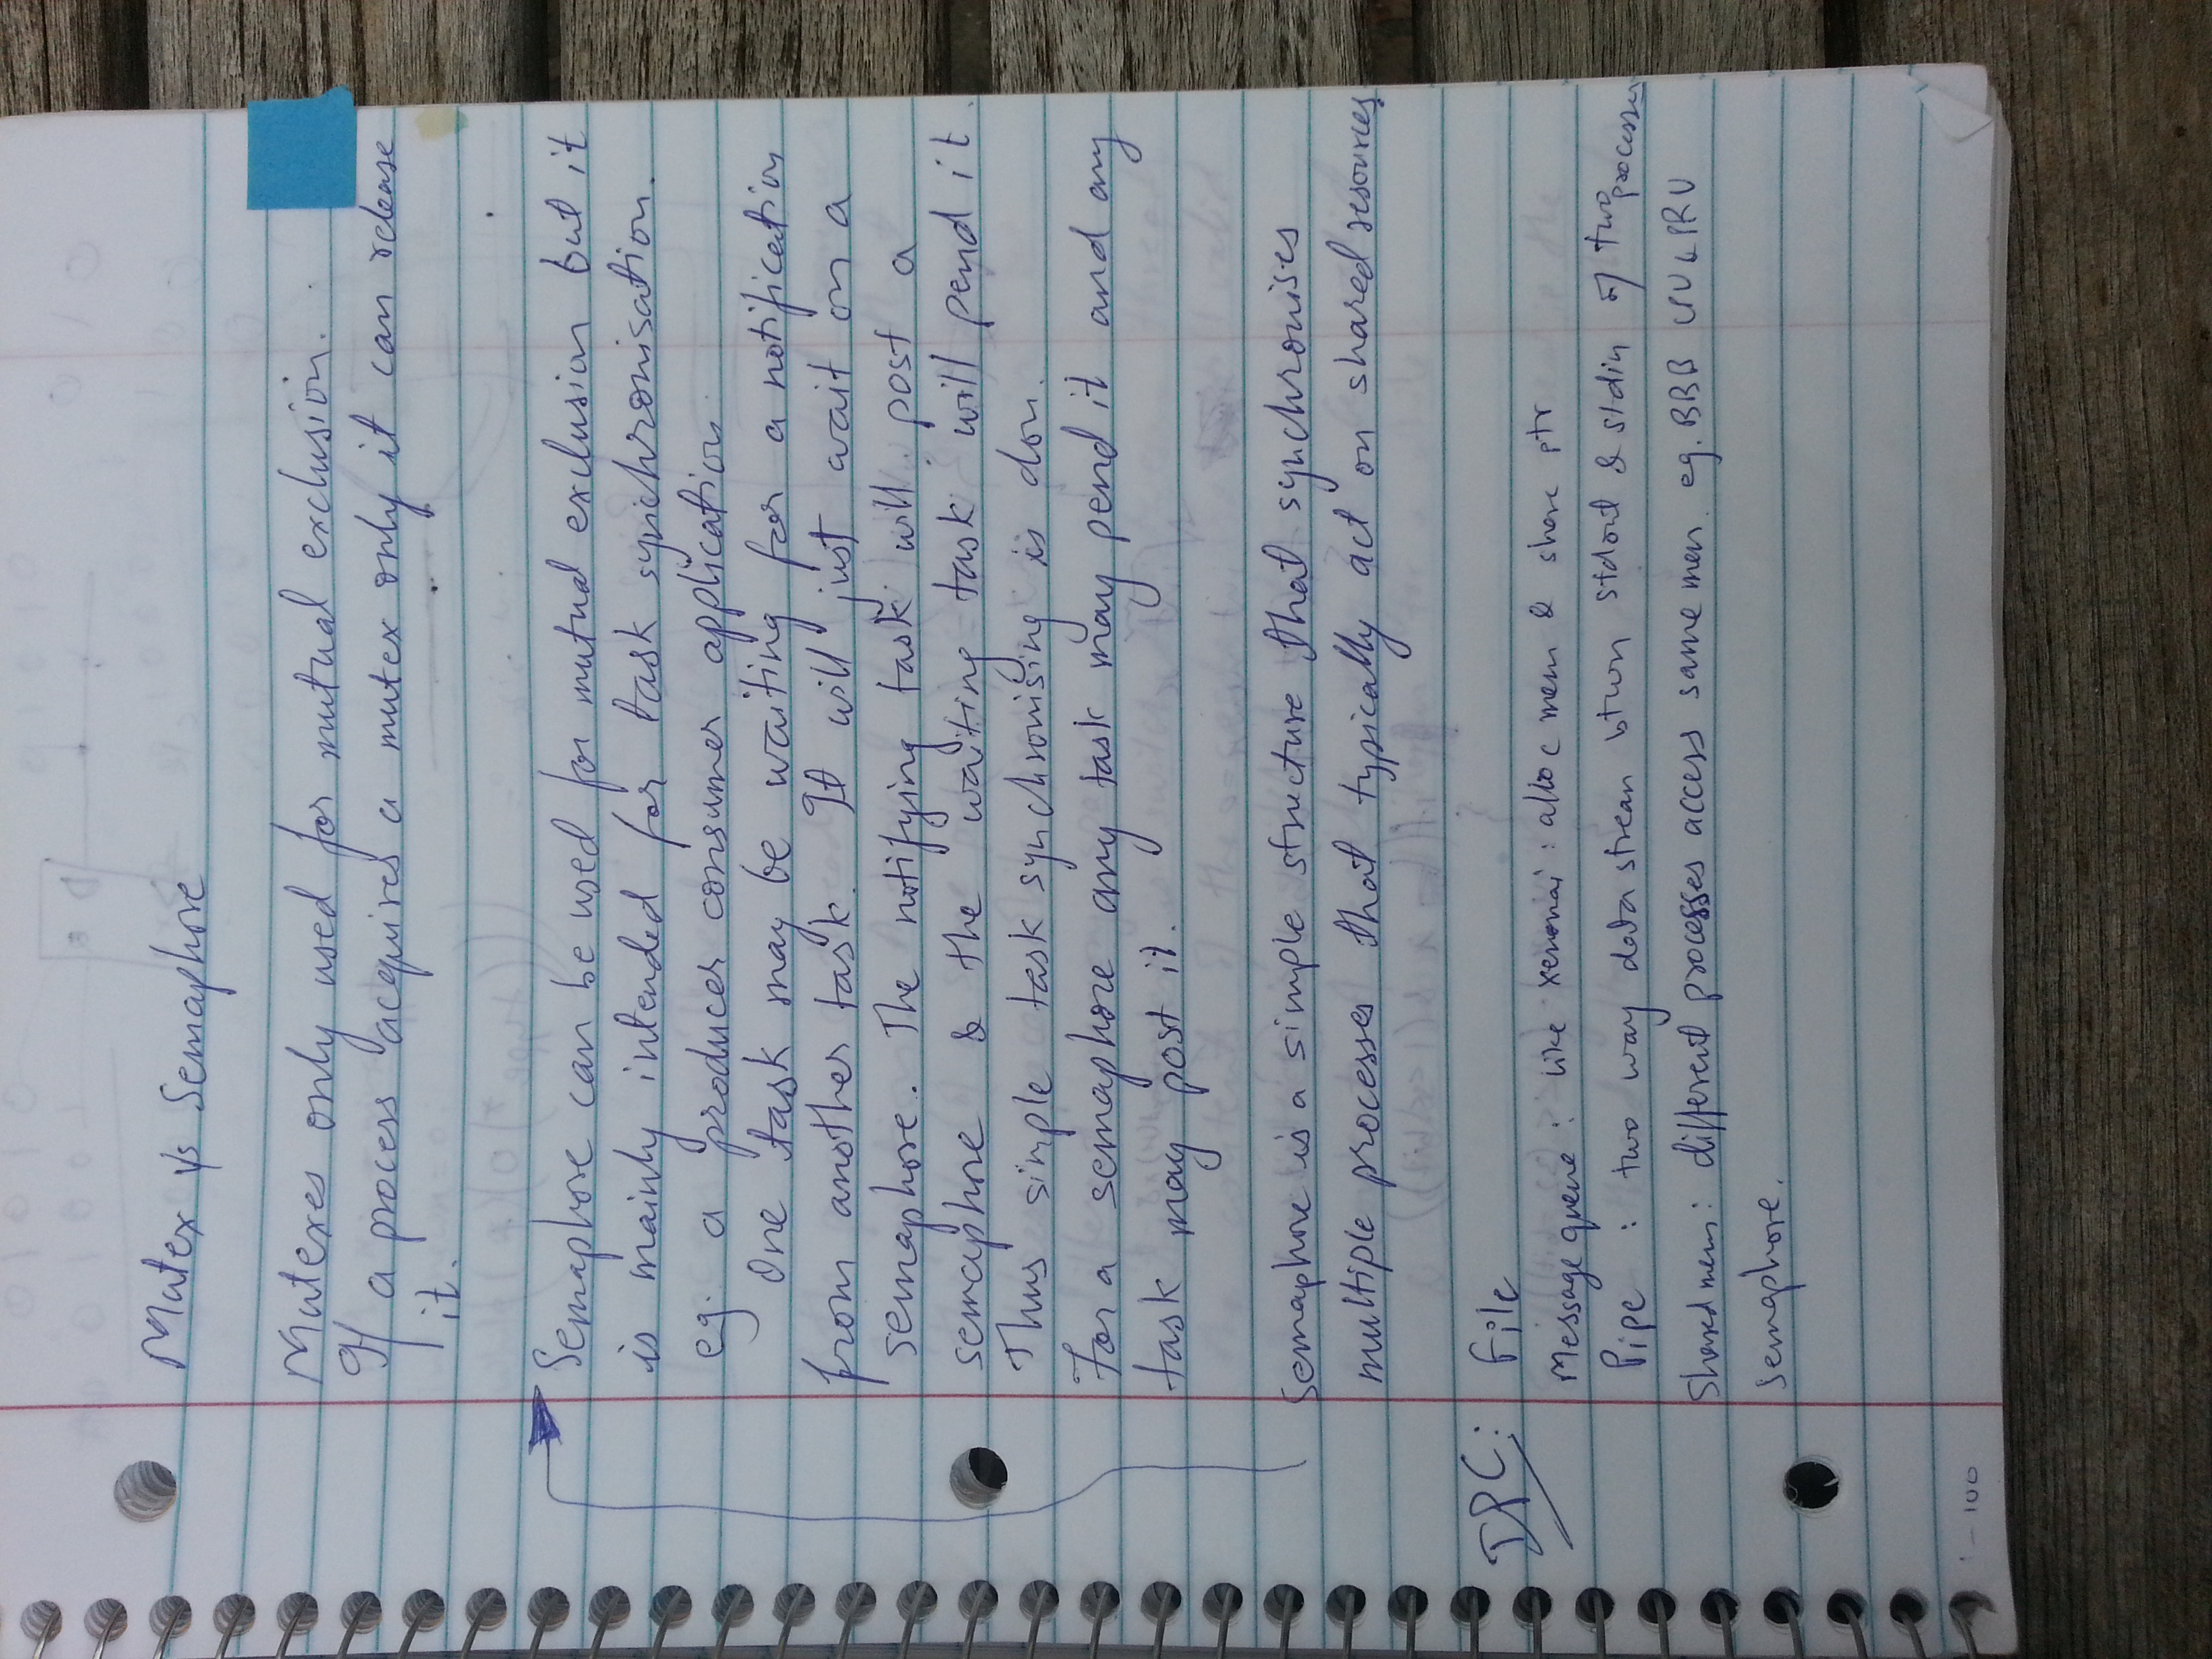 Mutex v/s Semaphore
Mutexes only used for mutual exclusion.
If a process acquires a mutex only it can release
it.
Semaphore can be used for mutual exclusion but it
is mainly intended for task synchronisation.
eg. a producer consumer application
One task may be waiting for a notification
from another task. It will just wait on a
semaphore. The notifying task will post a
semaphore & the waiting task will pend it.
Thus simple task synchronising is don.
For a semaphore any task may pend it and any
task may post it.
Semaphore is a simple structure that synchronises
multiple processes that typically act on shared resources.
IPC: File
Message queue : like xenomai : alloc mem & share ptr
Pipe : two way data stream btwn stdout & stdin of two processes
Shared mem : different processes access same mem. eg. BBB CPU & PRU
semaphore.
- 100